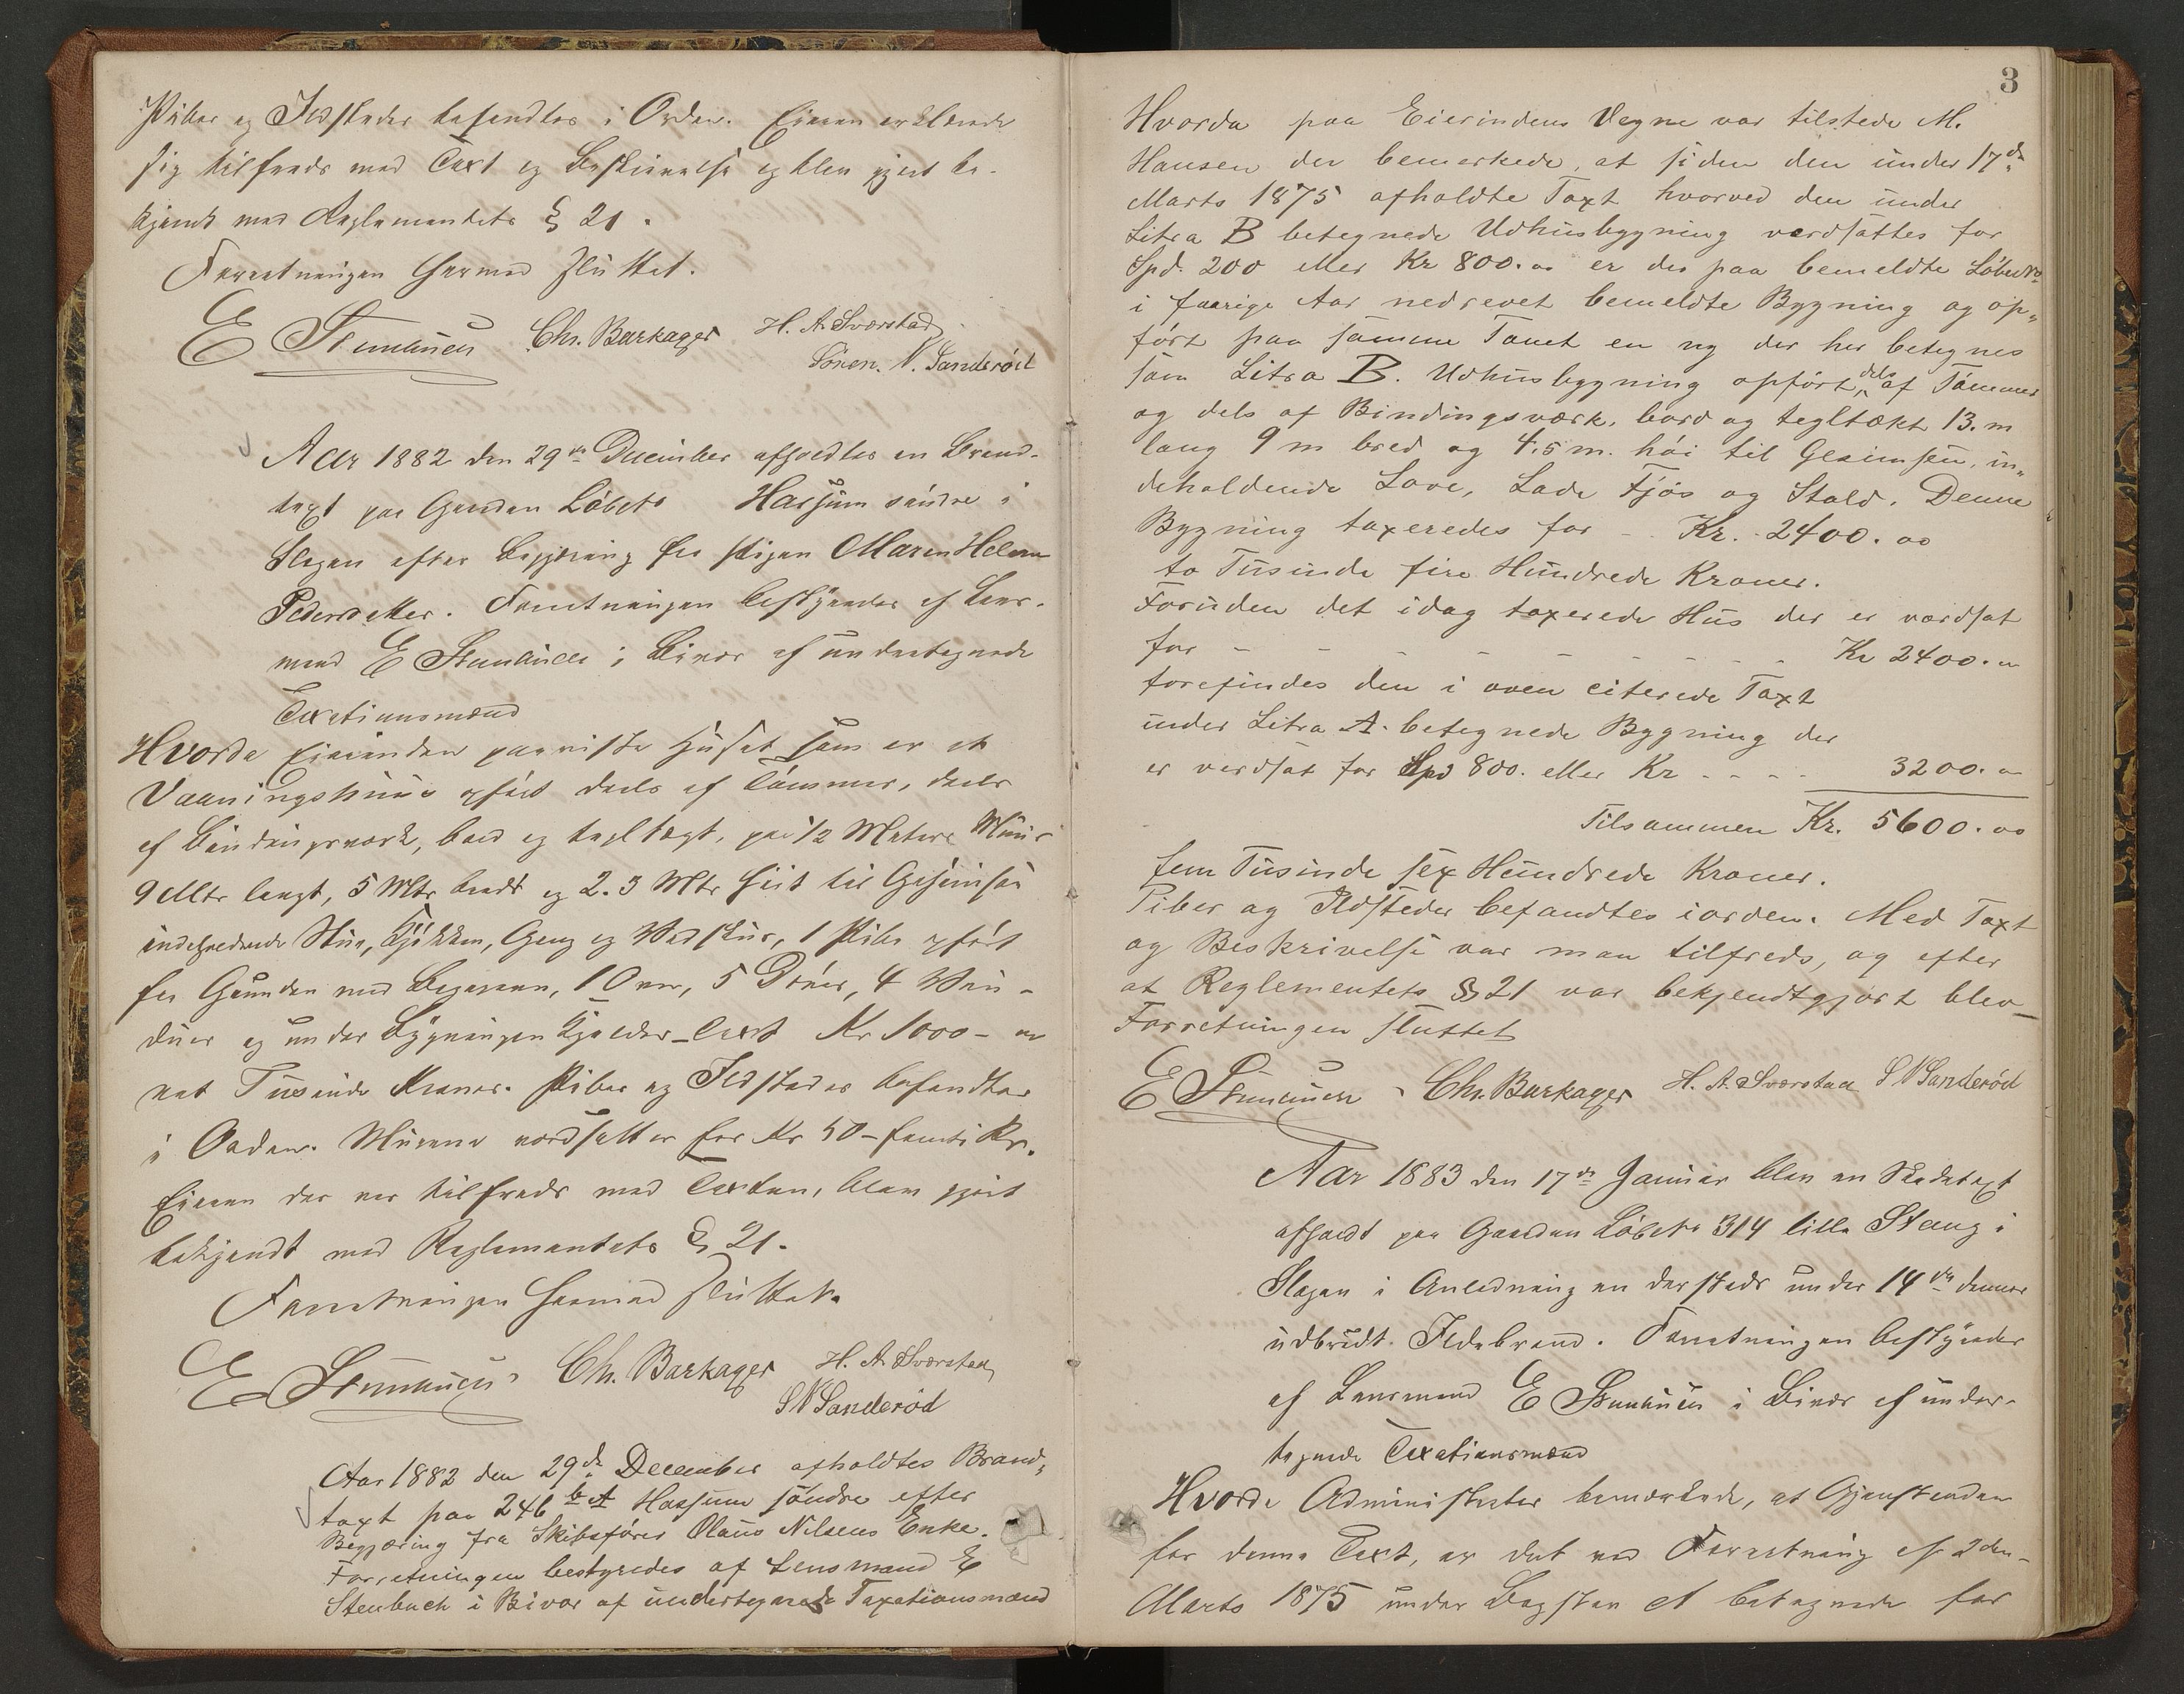 Piber og Ildsteder befandtes i Orden. Eieren erklærede
sig tilfreds med Taxt og Beskrivelse og blev gjort be-
kjendt med Reglementets § 21.
Forretningen hermed sluttet.
E Stenbuch Chr. Barkager H. A. Sværstad
Sören. N. Sanderöd
Aar 1882 den 29de December afholdtes en Brand-
taxt paa Gaarden Löbeno Hassum söndre i
Slagen efter Begjæring fra Pigen Maren Helene
Pedersdatter. Forretningen bestyredes af Lens-
mand E Stenbuch i Bivær af undertegnede
Taxationsmænd
Hvorda Eierinden paaviste Huset som er et
Vaaningshuus opført deels af Tömmer, deels
af Bindingsværk, bord og tegltægt, paa 1/2 Meters Muur
9 Mtr langt, 5 Mtr bredt og 2.3 Mtr høit til Gesimsen
indeholdende Stue, Kjökken, Gang og Vedskur, 1 Pibe opført
fra Grunden med Bageroven, 1 Ovn, 5 Döre, 4 Vin-
duer og under Bygningen Kjelder - Taxt Kr 1000 - oo
et Tusinde Kroner. Piber og Ildsteder befandtes
i Orden. Murene værdsattes for Kr 50 - femti Kr.
Eieren der var tilfreds med Taxten, blev gjort
bekjendt med Reglementets § 21.
Forretningen hermed sluttet.
E Stenbuch Ch. Barkager H. A. Sværstad
S N Sanderöd
Aar 1882 den 29de December afholdtes Brand„
taxt paa 246 b A Hassum söndre efter
Begjæring fra Skibsförer Olaus Nilsens Enke.
Forretningen bestyredes af Lensmand E
Stenbuch i Bivær af undertegnede Taxationsmænd
3
Hvorda paa Eierindens Vegne var tilstede M.
Hansen der bemerkede, at siden den under 17de
Marts 1875 afholdte Taxt hvorved den under
Litra B betegnede Udhusbygning værdsattes for
Spd. 200 eller Kr 800.oo er der paa bemeldte Löbeno
i forrige Aar nedrevet bemeldte Bygning og op„
fört paa samme Tomt en ny der her betegnes
som Litra B. Udhusbygning opfört dels af Tömmer
og dels af Bindingsværk, bord og tegltækt 13. m
lang 9 m bred og 4.5 m. höi til Gesimsen, in„
deholdende Lave, Lade Fjös og Stald. Denne
Bygning taxeredes for - Kr. 2400.oo
to Tusinde fire Hundrede Kroner.
Foruden det idag taxerede Hus der er værdsat
for - - - - - - - - - Kr 2400.oo
forefindes den i oven citerede Taxt
under Litra A. betegnede Bygning der
er verdsat for Spd 800. eller Kr - - - - 3200.oo
Tilsammen Kr. 5600.oo
fem Tusinde sex Hundrede Kroner.
Piber og Ildsteder befandtes iorden. Med Taxt
og Beskrivelse var man tilfreds, og efter
at Reglementets § 21 var bekjendtgjort blev
Forretningen sluttet
E Stenbuch Chr. Barkager H. A. Sværstad S N Sanderöd
Aar 1883 den 17de Januar blev en Skadetaxt
afholdt paa Gaarden Löbeno 314 lille Stang i
Slagen i Anledning en dersteds under 14de dennes
udbrudt Ildebrand. Forretningen bestyredes
af Lensmand E Stenbuch i Bivær af under-
tegnede Taxationsmænd
Hvorda Administrator bemærkede, at Gjenstanden
for denne Taxt, er det ved Forretning af 2den
Marts 1875 under Bogstav A betegnede for